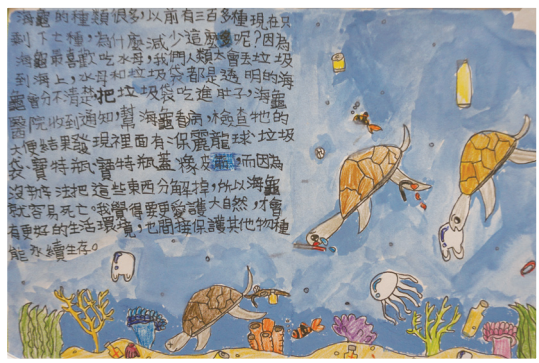 海龜的種類很多,以前有三百多種現在只
剩下七種,為什麼減少這麼多呢?因為
海龜最喜歡吃水母,我們人類太會丟垃圾
到海上,水母和垃圾袋都是透明的海
龜會分不清楚把垃圾袋吃進肚子,海龜
醫院收到通知,幫海龜看病,檢查牠的
大便結果發現裡面有保麗龍球、垃圾
袋、寶特瓶、寶特瓶蓋、橡皮,而因為
沒辦法把這些東西分解掉,所以海龜
就容易死亡。我覺得要更愛護大自然,才會
有更好的生活環境,也間接保護其他物種
能永續生存。